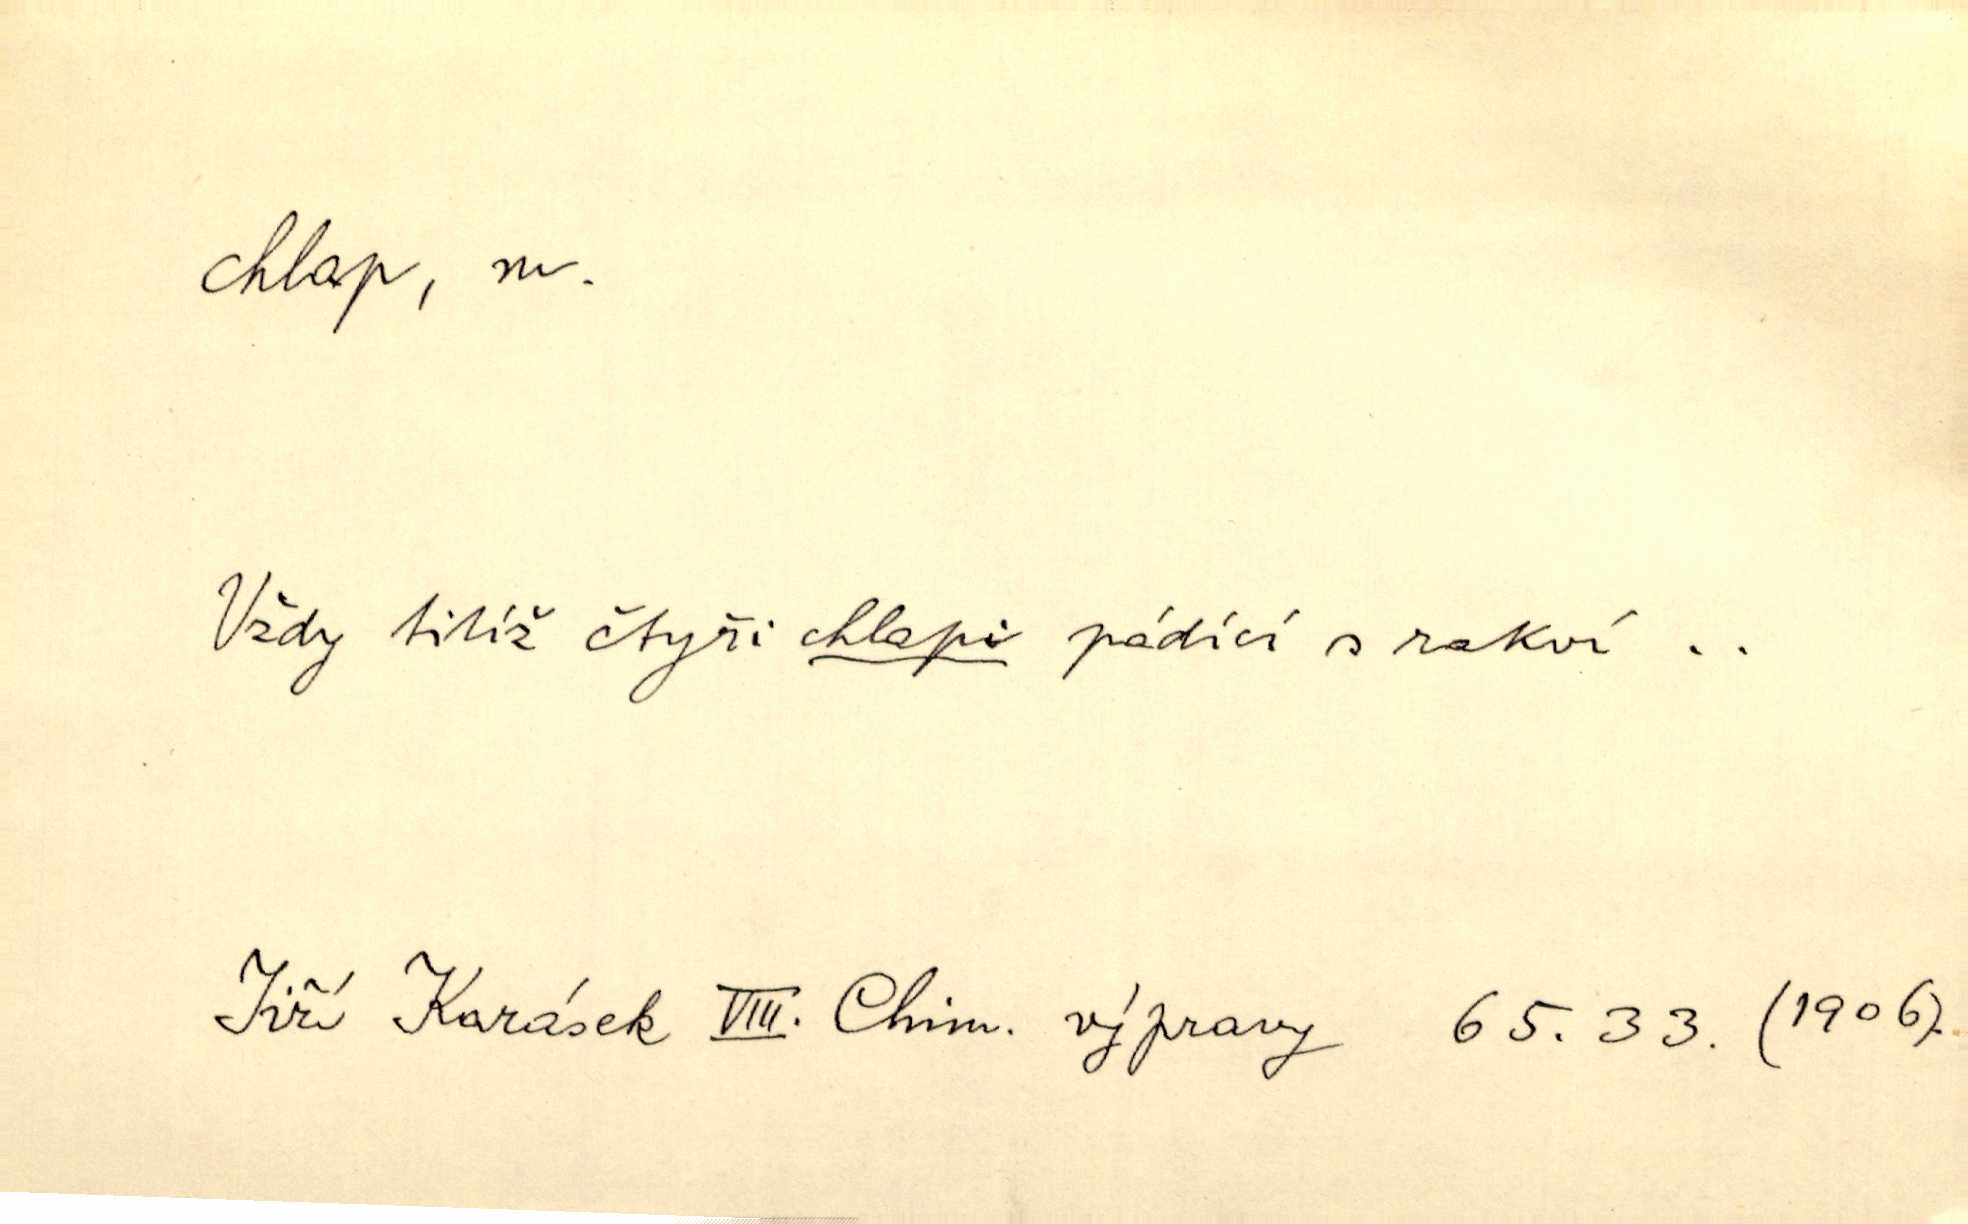 chlap, m.
Vždy titíž čtyři chlapi pádící s rakví ..
Jiří Karásek VIII. Chim. výpravy 65. 33. (1906).